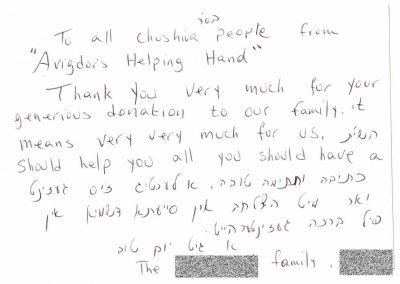 בס"ד
To all chushiva people from
"Avigdors Helping Hand"
Thank you very much for your
generious donation to our family. it
means very very much for us. השי"ת
should help you all you should have a
כתיבה וחתימה טובה. א לעכטיג זיס געזינט
יאר מיט הצלחה אין סייעתא דשמיא אין
פיל ברכה געזינטערהייט.
א גוט יום טוב
The family.